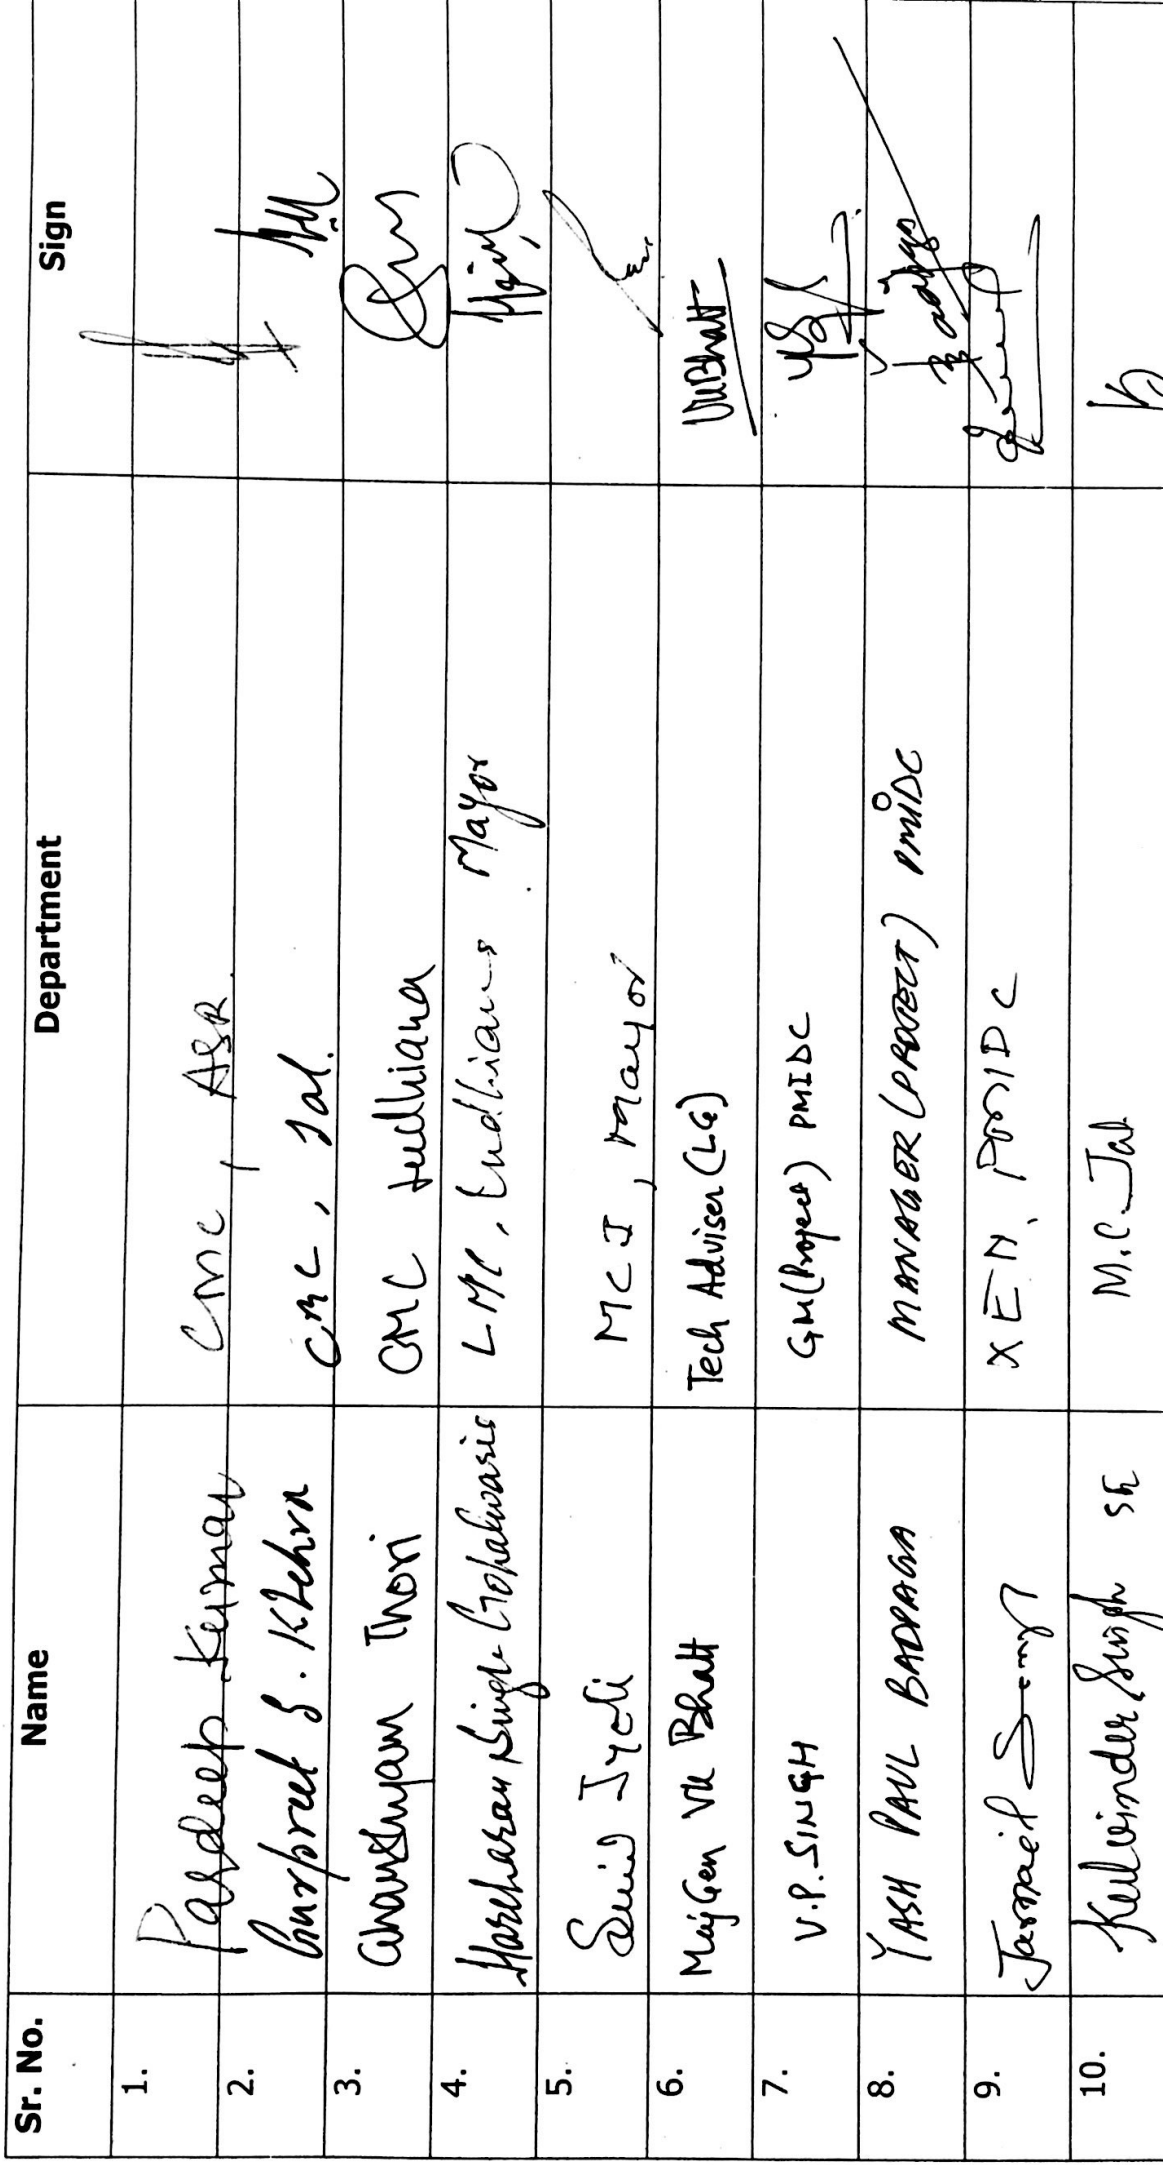 Sr. No. Name Department Sign
1. Pardeep Kumar CMC, ASR.
2. Gurpreet S. Khehra CMC, Jal.
3. Ghanshyam Thori CMC Ludhiana
4. Harcharan Singh Gohalwaria LMC, Ludhiana Mayor
5. Sunil Jyoti MCJ, Mayor
6. Maj Gen VK Bhatt Tech Adviser (LG) VKBhatt
7. V.P. SINGH GM (Project) PMIDC
8. YASH PAUL MANAGER (PROJECT) PMIDC
9. Jarnail Singh XEN, PMIDC
10. Kulwinder Singh SE M.C. Jal